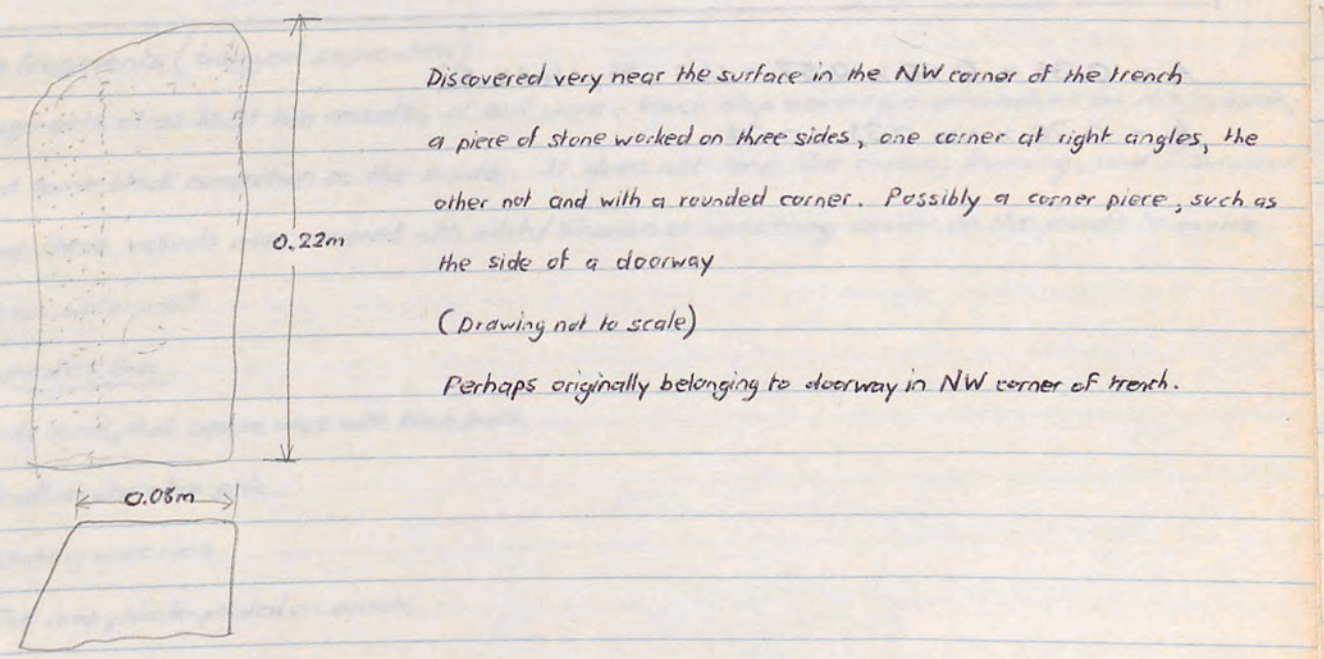 Discovered very near the surface in the NW corner of the trench
a piece of stone worked on three sides, one corner at right angles, the
other not and with a rounded corner. Possibly a corner piece, such as
0.22m
the side of a doorway
(Drawing not to scale)
Perhaps originally belonging to doorway in NW corner of trench.
0.08m